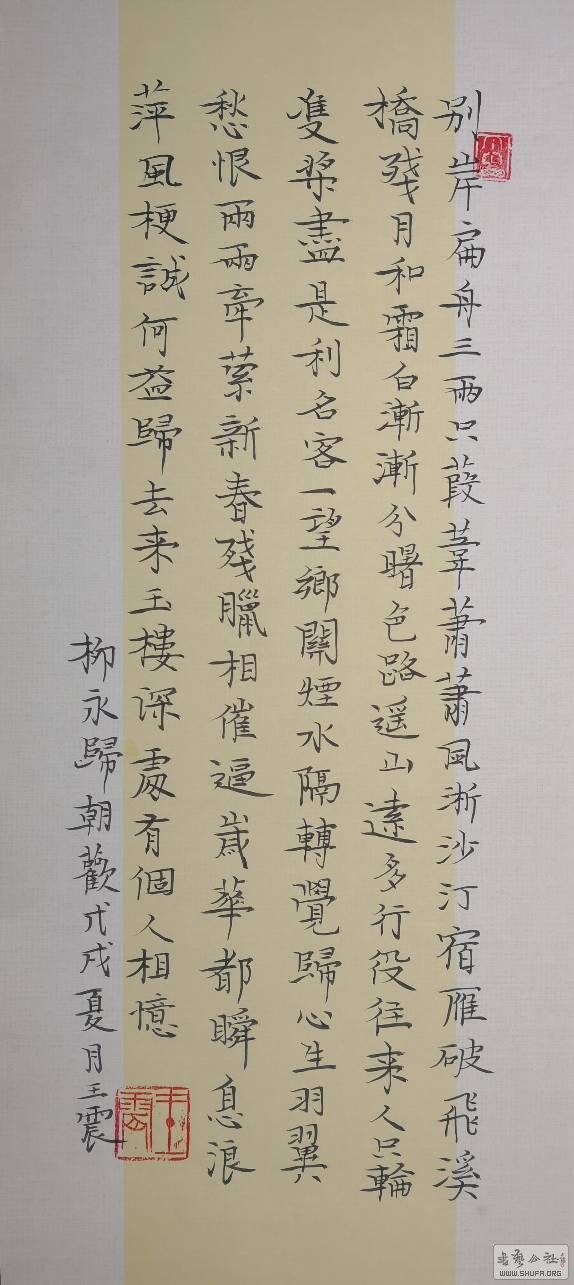 别岸扁舟三兩只葭葦蕭蕭風淅沙汀宿雁破飛溪
橋殘月和霜白漸漸分曙色路遥山遠多行役往来人只輪
隻槳盡是利名客一望鄉關煙水隔轉覺歸心生羽翼
愁恨雨兩牽縈新春殘臘相催逼歲華都瞬息浪
萍風梗誠何益歸去来玉樓深處有個人相憶
柳永歸朝歡戊戌夏月王震
王震
書藝公社
WWW.SHUFA.ORG